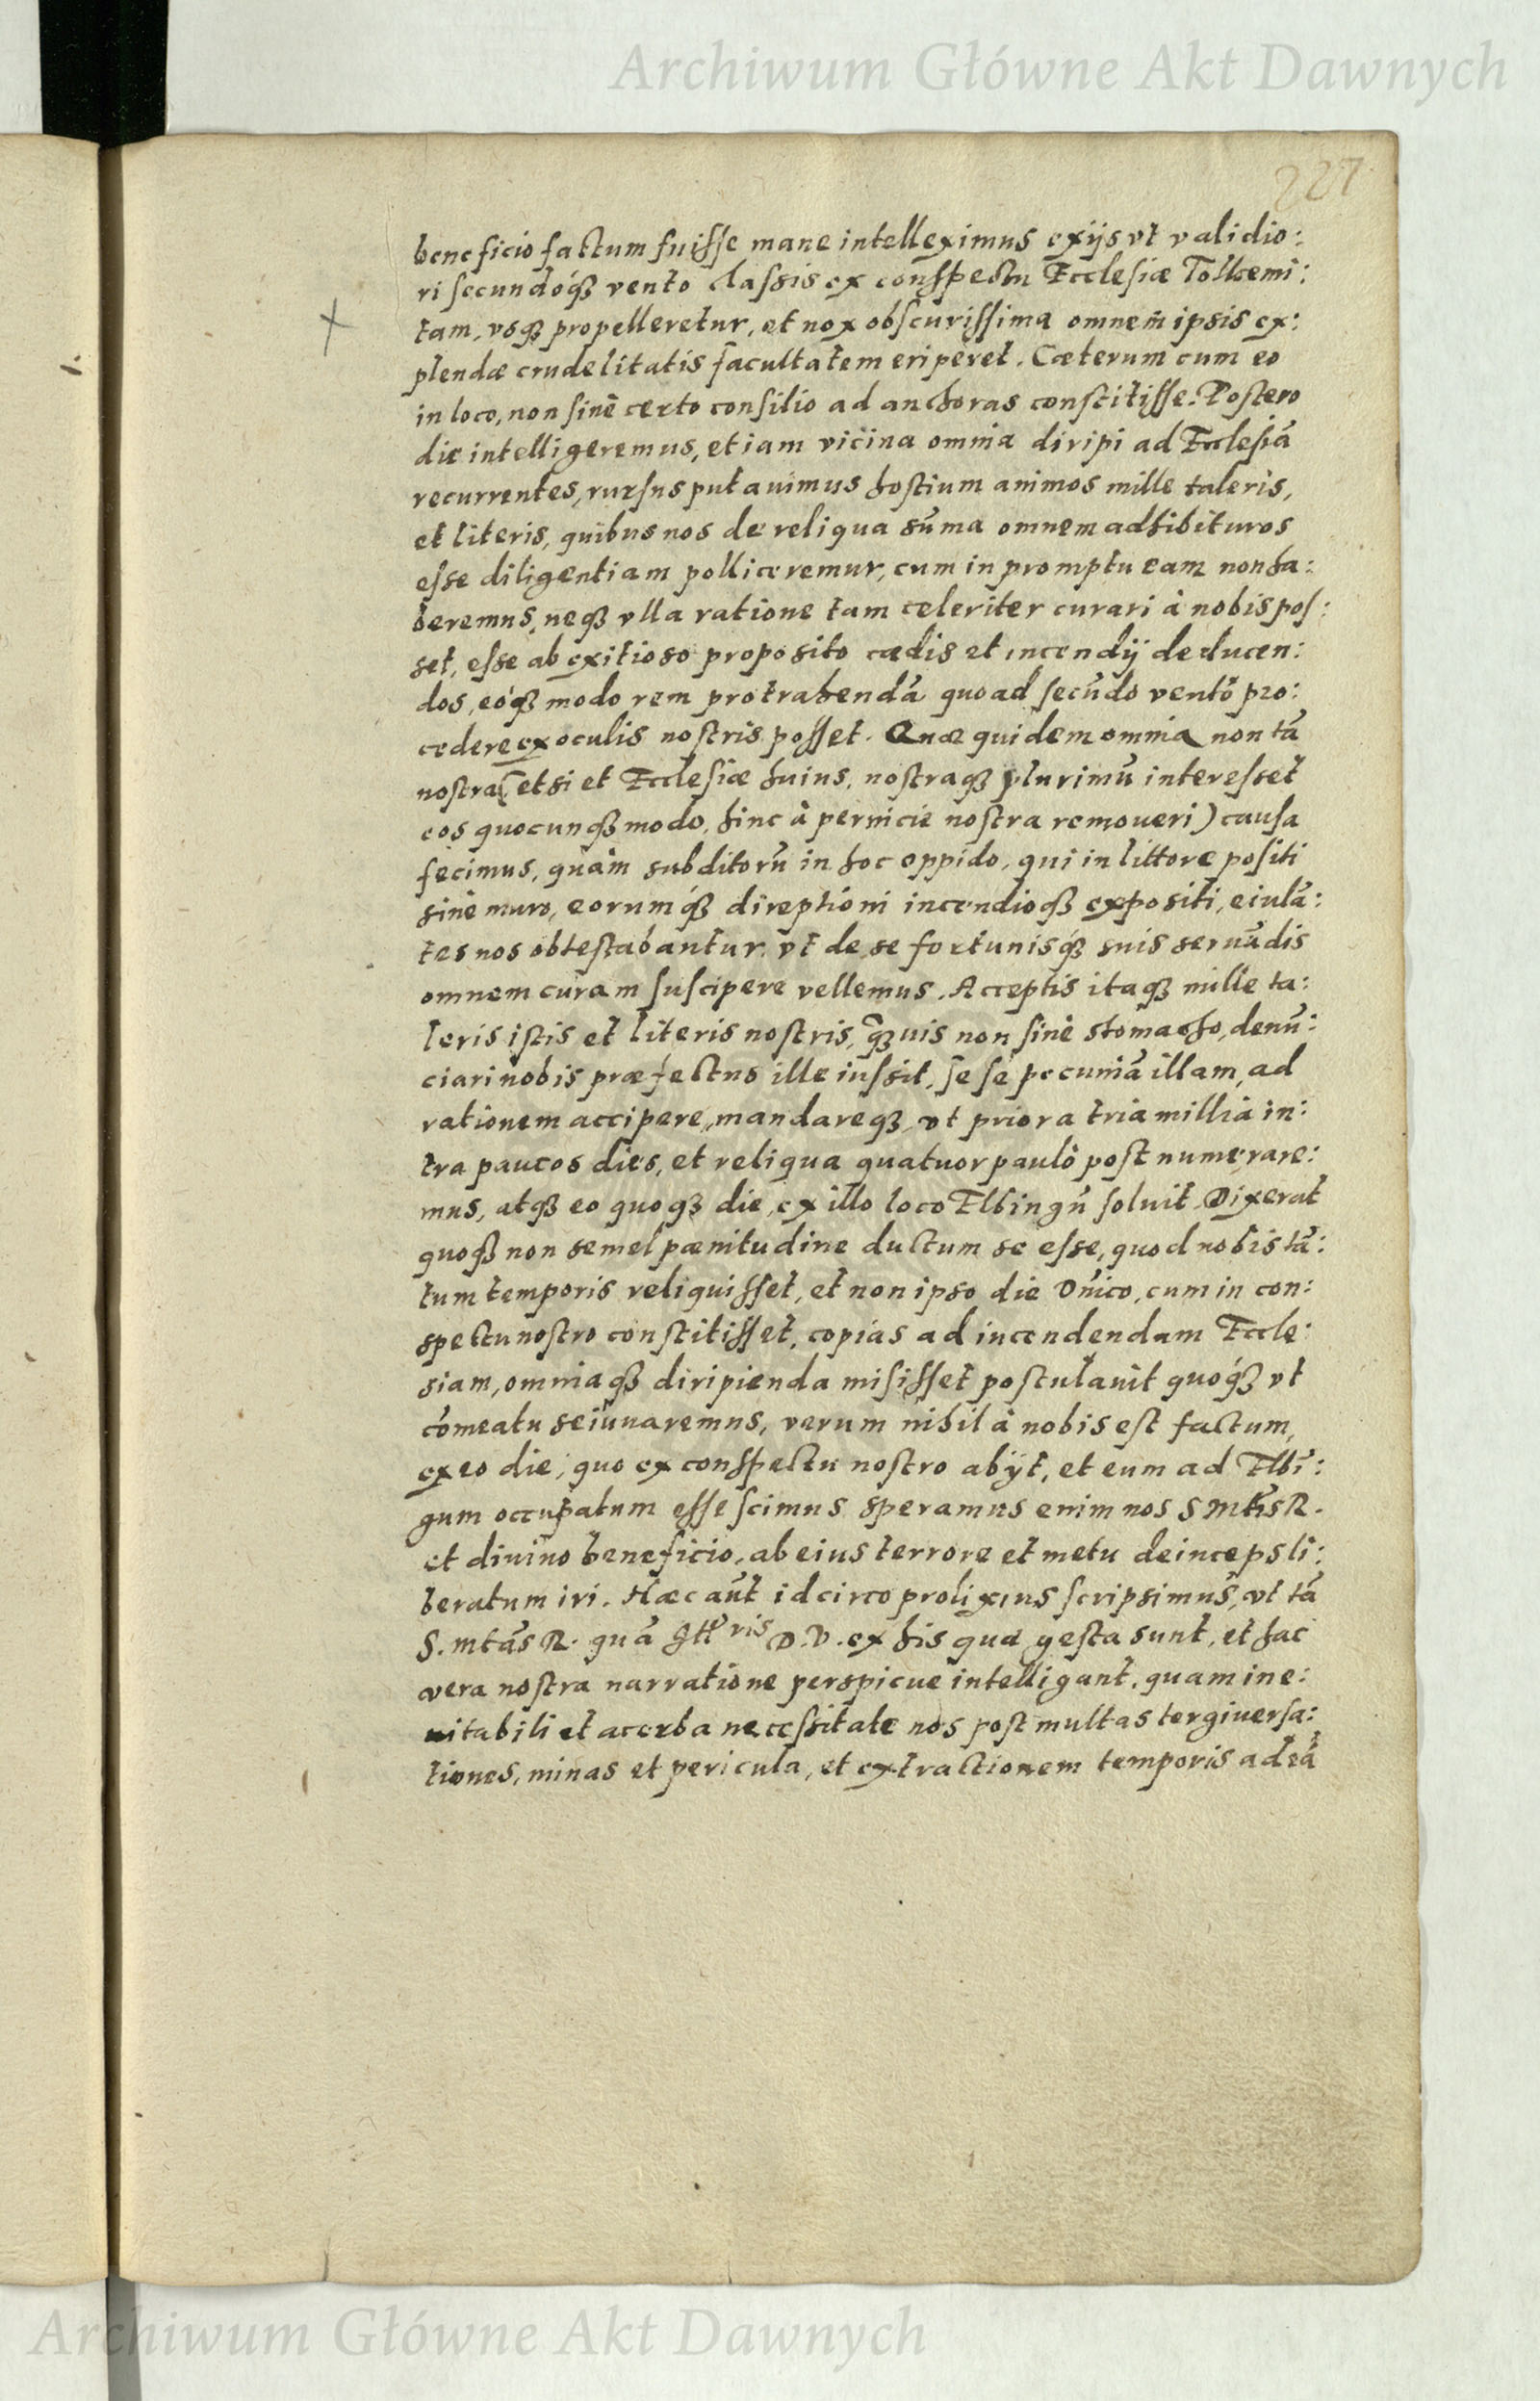 Archiwum Główne Akt Dawnych
227
beneficio factum fuisse mane intelleximus exijs vt validio:
ri secundóq᷎ vento classis ex conspectu Ecclesiæ Tolkemi:
tam, vsq᷎ propelleretur, et nox obscurissima omnem ipsis ex:
plendæ crudelitatis facultatem eriperet. Cæterum cum eo
in loco, non sinè certo consilio ad anchoras constitisse. Postero
die intelligeremus, etiam vicina omnia diripi ad Ecclesiā
recurrentes, rursus putauimus hostium animos mille taleris,
et literis, quibus nos de reliqua sūma omnem adhibituros
esse diligentiam polliceremur, cum in promptu eam non ha:
beremus, neq᷎ vlla ratione tam celeriter curari à nobis pos:
set, esse ab exitioso proposito cædis et incendij deducen:
dos, eóq᷎ modo rem protrahendā quoad secūdo ventō pro:
cedere ex oculis nostris posset. Quæ quidem omnia non tā
nostra (etsi et Ecclesiæ huius, nostraq᷎ plurimū interesset
eos quocunq᷎ modo, hinc à pernicie nostra remoueri) causa
fecimus, quàm subditorū in hoc oppido, qui in littore positi
sinè muro, eorumq᷎́ direptioni incendioq᷎ expositi, eiulā:
tes nos obtestabantur, vt de se fortunisq᷎́ suis seruādis
omnem curam suscipere vellemus. Acceptis itaq᷎ mille ta:
leris istis et literis nostris, q᷎̄uis non sinè stomacho, denū:
ciari nobis præfectus ille iussit, se se pecuniā illam, ad
rationem accipere, mandareq᷎, vt priora tria millia in:
tra paucos dies, et reliqua quatuor paulò post numerare:
mus, atq᷎ eo quoq᷎ die, ex illo loco Elbingū soluit. Dixerat
quoq᷎ non semel pænitudine ductum se esse, quod nobis tā:
tum temporis reliquisset, et non ipso die Dn̄ico, cum in con:
spectu nostro constitisset, copias ad incendendam Eccle:
siam, omniaq᷎ diripienda misisset postulauit quoq᷎́ vt
cōmeatu se iuuaremus, verum nihil à nobis est factum,
ex eo die, quo ex conspectu nostro abijt, et eum ad Elbī:
gum occupatum esse scimus speramus enim nos S Mtis R.
et diuino beneficio, ab eius terrore et metu deinceps li:
beratum iri. Hæc aūt idcirco prolixius scripsimus, vt tā
S. Mtās R. quā D. V. ex his quæ gesta sunt, et hac
vera nostra narratione perspicue intelligant, quam ine:
uitabili et acerba necessitate nos post multas tergiuersa:
tiones, minas et pericula, et extractionem temporis ad eā
Archiwum Główne Akt Dawnych